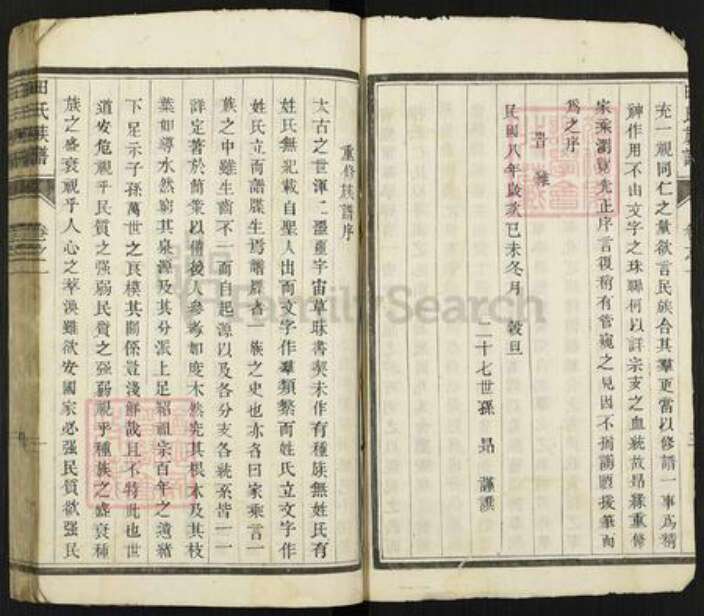 充一視同仁之量欲言民族合其羣更當以修譜一事爲精
神作用不由文字之珠聯何以詳宗支之血統故昂緣重修
家乘瀏覽先正序言復稍有管窺之見因不揣謭陋援筆而
爲之序
民國八年歲次己未冬月 穀旦
二十七世孫 昂 謹譔
田氏族譜
重修族譜序
太古之世渾二噩噩宇宙草昧書契未作有種族無姓氏有
姓氏無紀載自聖人出而文字作羣類繁而姓氏立文字作
姓氏立而譜牒生焉譜牒者一族之史也亦名曰家乘言一
族之中雖生齒不一而自起源以及各分支各統系皆一一
詳定著於簡策以備後人參考如度木然究其根本及其枝
葉如導水然窮其泉源及其分派上足紹祖宗百年之遺緒
下足示子孫萬世之良模其關係豈淺鮮哉且不特此也世
道安危視乎民質之强弱民質之强弱視乎種族之盛衰種
族之盛衰視乎人心之萃渙雖欲安國家必强民質欲强民
FamilySearch